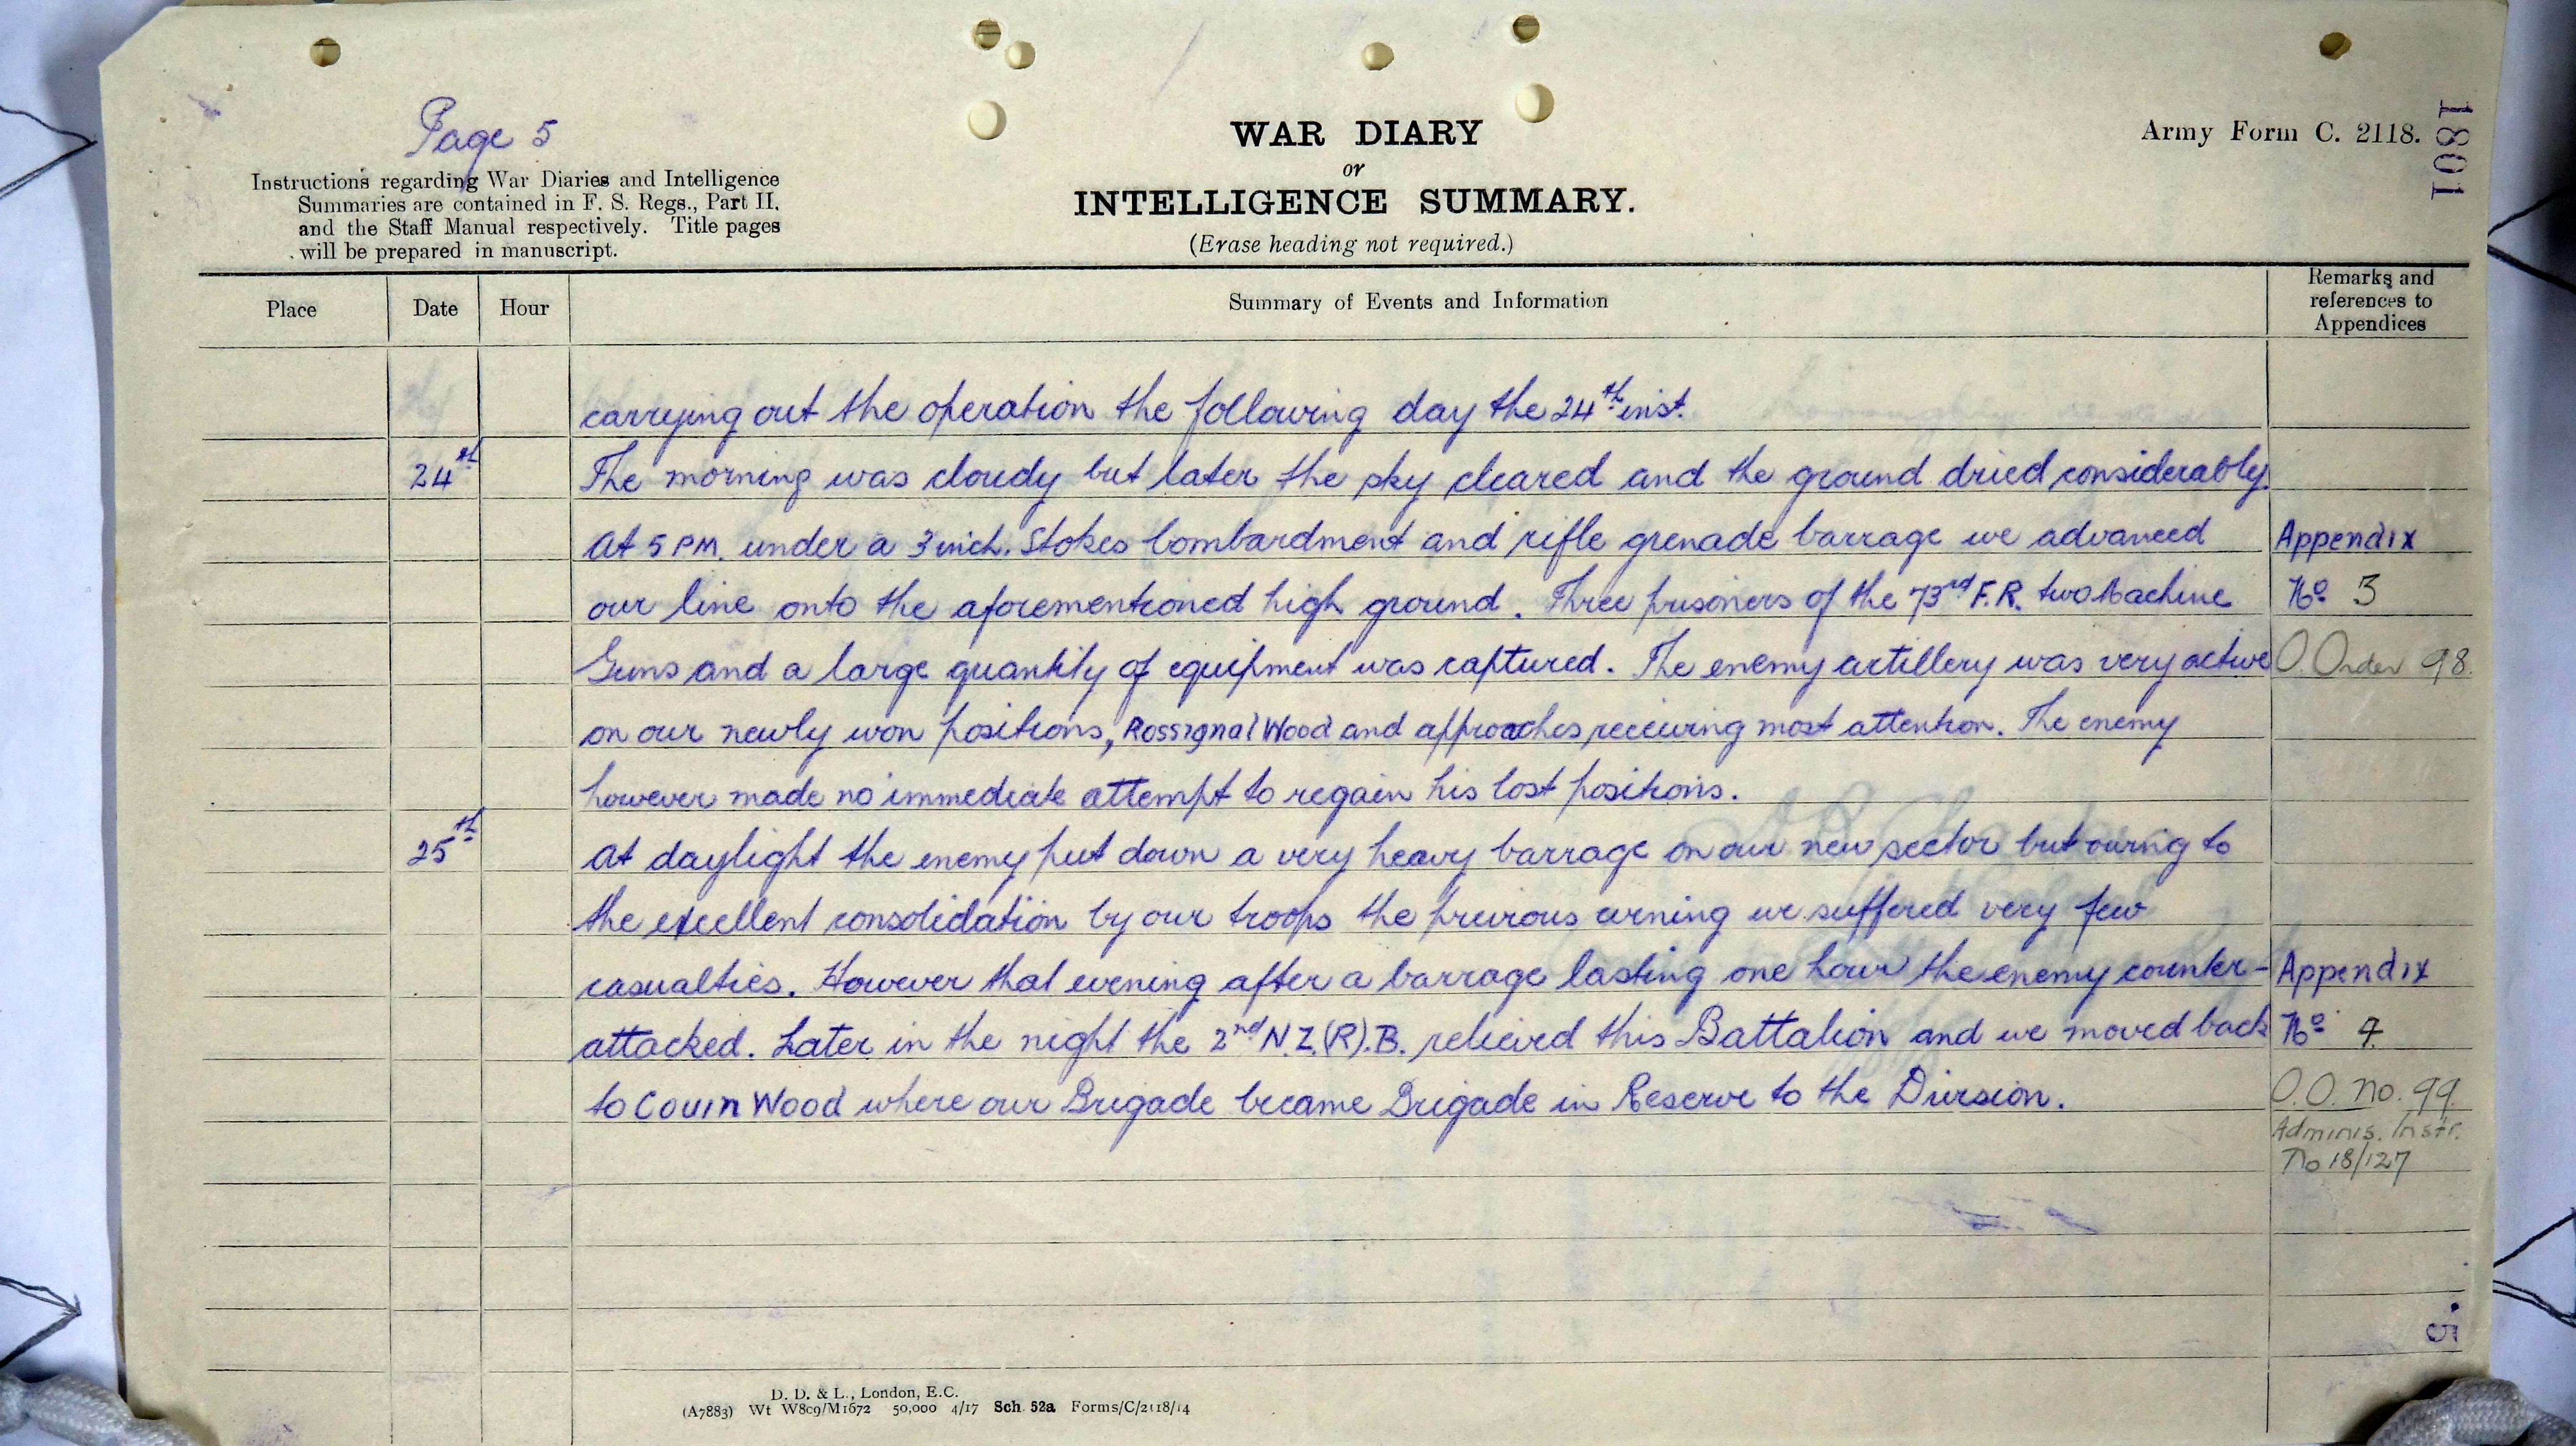 Page 5
Instructions regarding War Diaries and Intelligence
Summaries are contained in F. S. Regs., Part II.
and the Staff Manual respectively. Title pages
will be prepared in manuscript.
WAR DIARY
or
INTELLIGENCE SUMMARY.
(Erase heading not required.)
Army Form C. 2118.
1801
Place
Date
Hour
Summary of Events and Information
Remarks and
references to
Appendices
carrying out the operation the following day the 24th inst.
24th The morning was cloudy but later the sky cleared and the ground dried considerably.
At 5 PM. under a 3 inch. Stokes bombardment and rifle grenade barrage we advanced Appendix
our line onto the aforementioned high ground. Three prisoners of the 73rd F.R. two Machine No 3
Guns and a large quantity of equipment was captured. The enemy artillery was very active O. Order 98.
on our newly won positions, Rossignal Wood and approaches receiving most attention. The enemy
however made no immediate attempt to regain his lost positions.
25th At daylight the enemy put down a very heavy barrage on our new sector but owing to
the excellent consolidation by our troops the previous evening we suffered very few
casualties. However that evening after a barrage lasting one hour the enemy counter- Appendix
attacked. Later in the night the 2nd N.Z.(R).B. relieved this Battalion and we moved back No 4
to Couin Wood where our Brigade became Brigade in Reserve to the Division. O.O. no. 99.
Adminis. Instr.
No 18/127
5.
D. D. & L., London, E.C.
(A7883) Wt W809/M1672 50,000 4/17 Sch. 52a Forms/C/2118/14